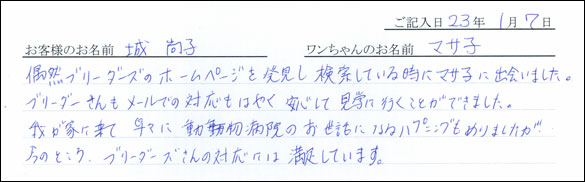 ご記入日 23年 1月 7日
お客様のお名前 城 尚子 ワンちゃんのお名前 マサ子
偶然ブリーダーズのホームページを発見し検索している時にマサ子に出会いました。
ブリーダーさんもメールでの対応もはやく安心して見学に行くことができました。
我が家に来て早々に動動物病院のお世話になるハプニングもありましたが
今のところ、ブリーダーズさんの対応には満足しています。